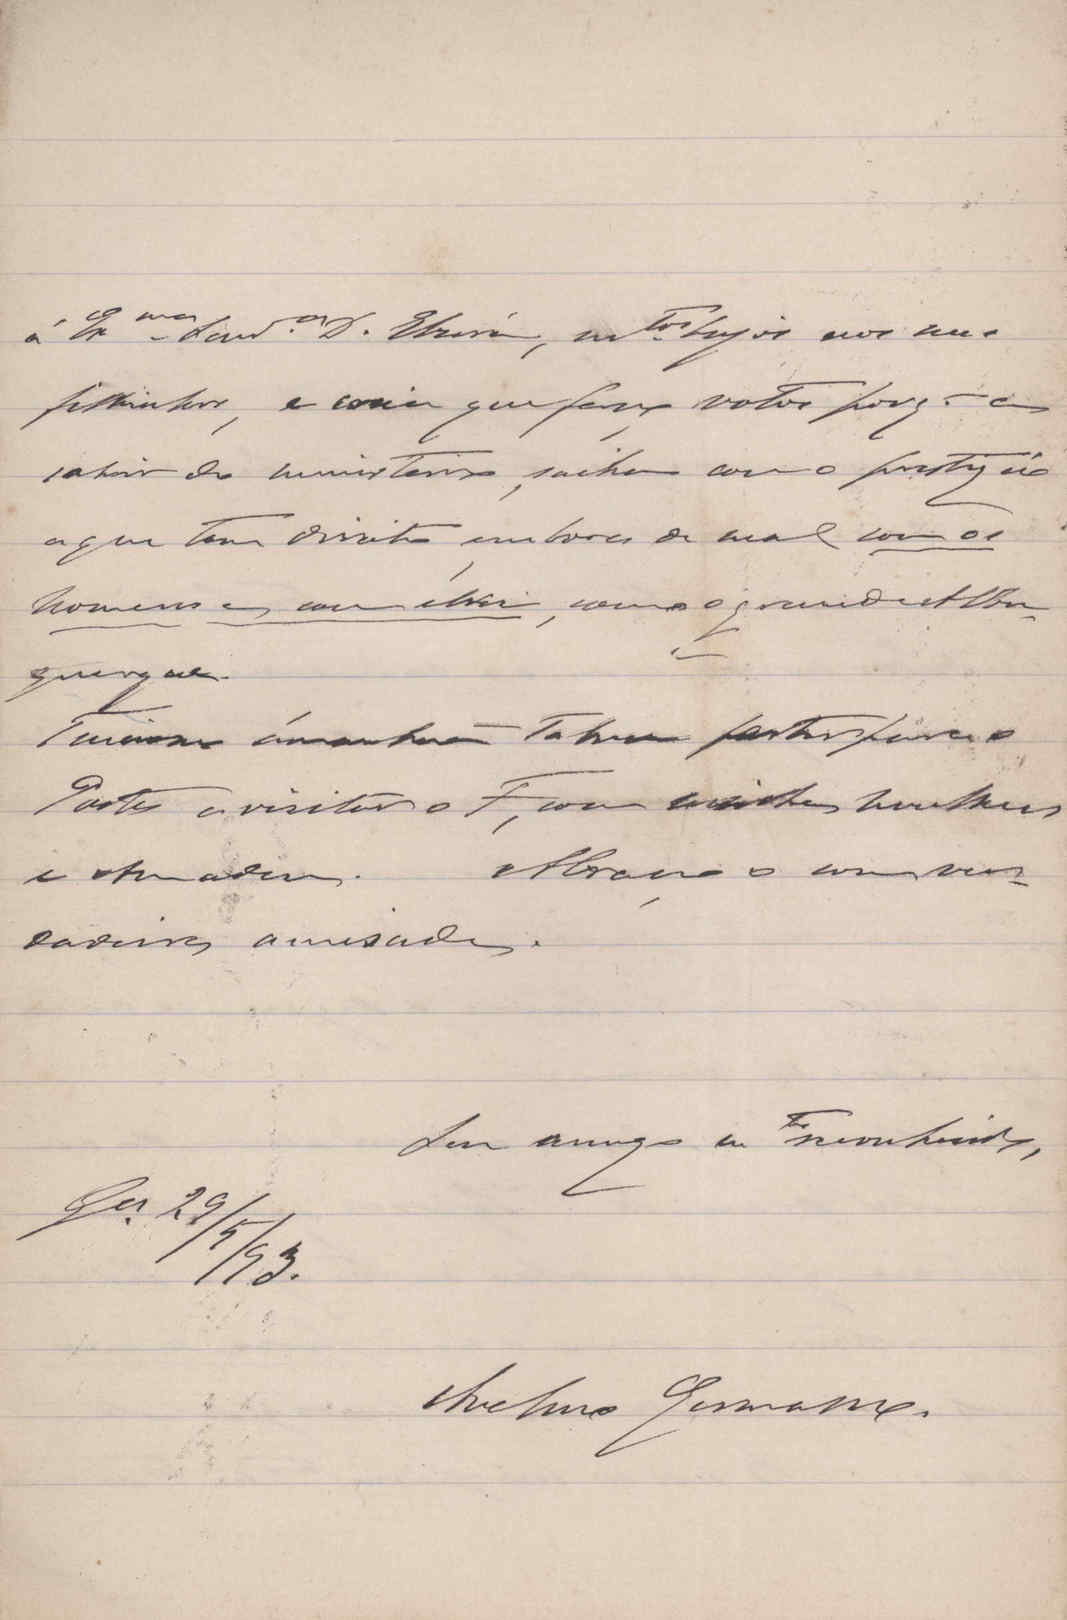 á Ex.ma Snr.a D. Elvira, m.tos beijos aos meus
filhinhos, e creia que faço votos porq. ao
sahir do ministerio, saiha com o prestigio
a que tem direito, embora de mal com os
homens e com elrei, como o grande Albu-
querque.
Tenciono ámanhã talvez partir para o
Porto a visitar o F, com minha mulher
e Amadeu. Abraça-o com ver-
dadeira amisade.
Seu amigo m.to reconhecido,
29/5/93.
Avelino Germano.